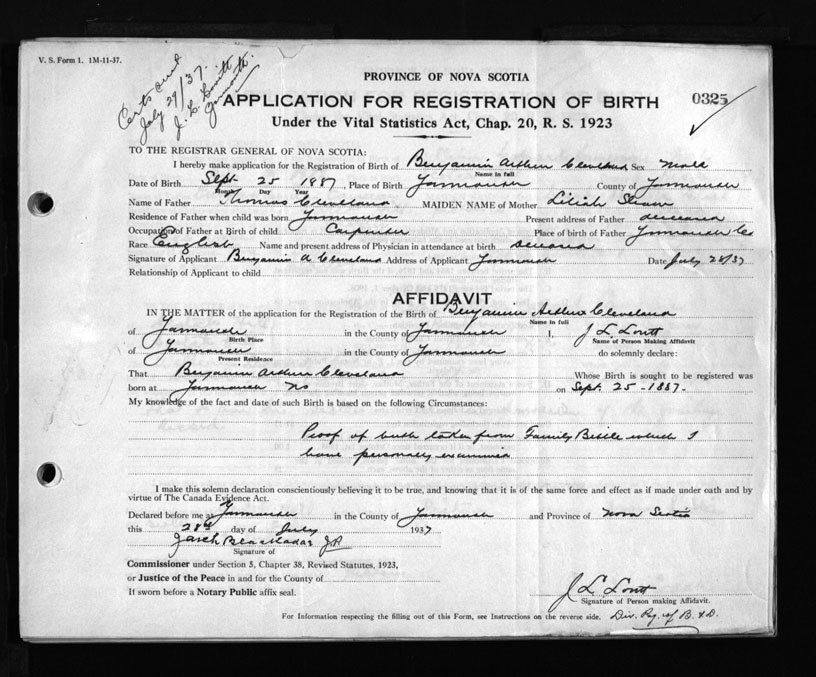 V. S. Form 1. 1M-11-37.
Certs sent
July 29/37.
J. L. Lovitt
Yarmouth
PROVINCE OF NOVA SCOTIA
APPLICATION FOR REGISTRATION OF BIRTH 0325
Under the Vital Statistics Act, Chap. 20, R. S. 1923
TO THE REGISTRAR GENERAL OF NOVA SCOTIA:
I hereby make application for the Registration of Birth of Benjamin Arthur Cleveland Sex Male
Name in full
Date of Birth Sept 25 1887, Place of Birth Yarmouth County of Yarmouth
Month Day Year
Name of Father Thomas Cleveland MAIDEN NAME of Mother
Residence of Father when child was born Yarmouth Present address of Father deceased
Occupation of Father at Birth of child Carpenter Place of birth of Father Yarmouth Co
Race English Name and present address of Physician in attendance at birth deceased
Signature of Applicant Benjamin A Cleveland Address of Applicant Yarmouth Date July 28/37
Relationship of Applicant to child
AFFIDAVIT
IN THE MATTER of the application for the Registration of the Birth of Benjamin Arthur Cleveland
Name in full
of Yarmouth in the County of Yarmouth I, J L Lovitt
Birth Place Name of Person Making Affidavit
of Yarmouth in the County of Yarmouth do solemnly declare:
Present Residence
That Benjamin Arthur Cleveland Whose Birth is sought to be registered was
born at Yarmouth NS on Sept. 25-1887.
My knowledge of the fact and date of such Birth is based on the following Circumstances:
Proof of birth taken from Family Bible which I
have personally examined
I make this solemn declaration conscientiously believing it to be true, and knowing that it is of the same force and effect as if made under oath and by
virtue of The Canada Evidence Act.
Declared before me at Yarmouth in the County of Yarmouth and Province of Nova Scotia
this 28th day of July 1937
Blackadar JP
Signature of
Commissioner under Section 5, Chapter 38, Revised Statutes, 1923,
or Justice of the Peace in and for the County of
If sworn before a Notary Public affix seal.
J L Lovitt
Signature of Person making Affidavit.
For Information respecting the filling out of this Form, see Instructions on the reverse side. Div. Reg. of B. & D.